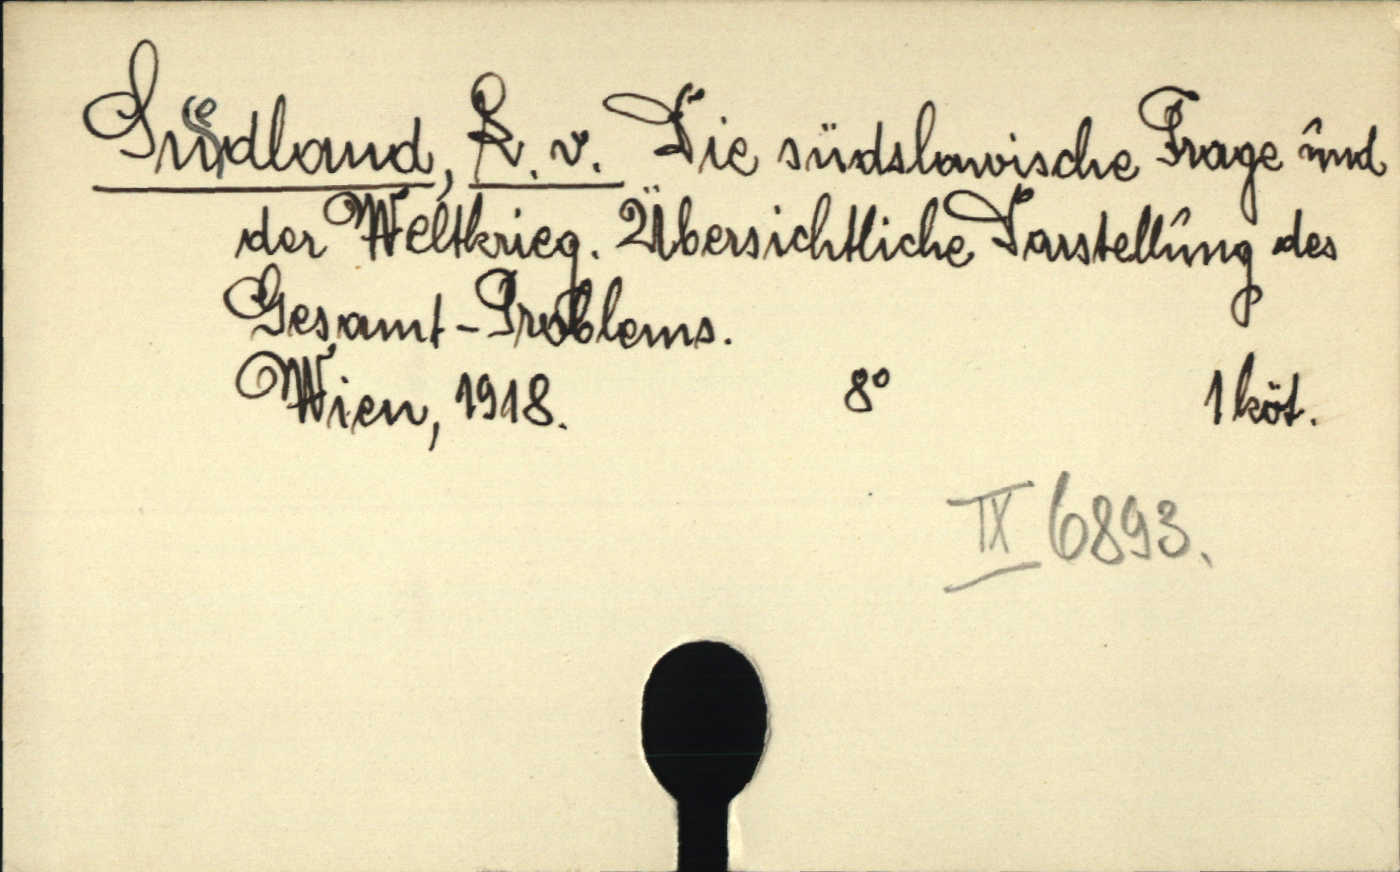 Südland, L. v. Die südslawische Frage und
der Weltkrieg. Übersichtliche Darstellung des
Gesamt-Problems.
Wien, 1918. 8° 1 köt.
IX 6893.